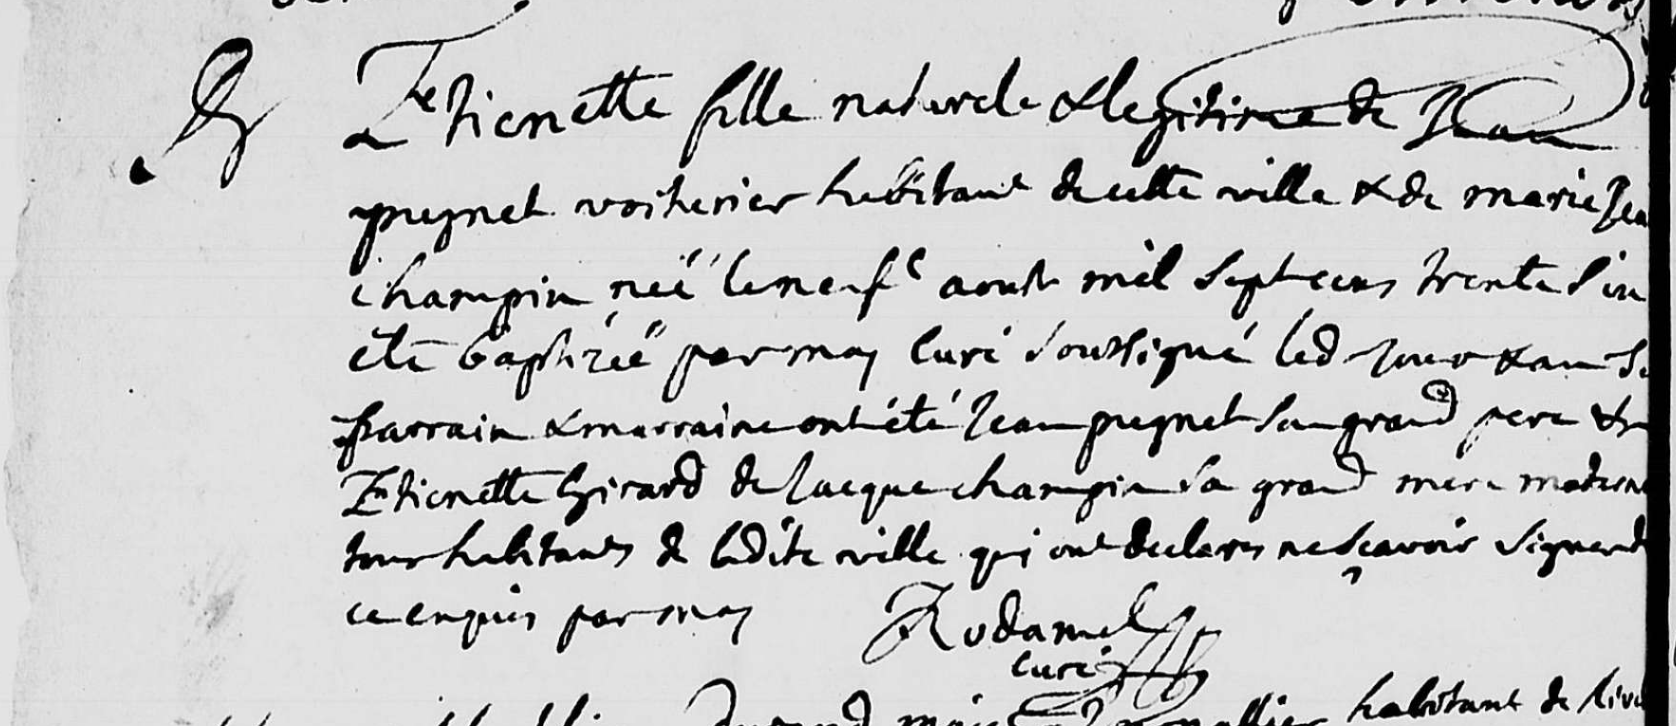 Etiennette fille naturele & legitime de Jean
pregnet voiturier habitant de cette ville & de marie Jea
champin néé le neufe aoust mil sept cens trente sin
été baptizéé par moy Curé soussigné led jour & an Sa
parrain & marraine ont été Jean pregnet son grand pere &
Etiennette Girard de Jacque champin sa grand mere materne
tous habitants de ladite ville qui ont declares ne scavoir signer de
ce enquis par moy
Rodamel
Curé
habitant de rive